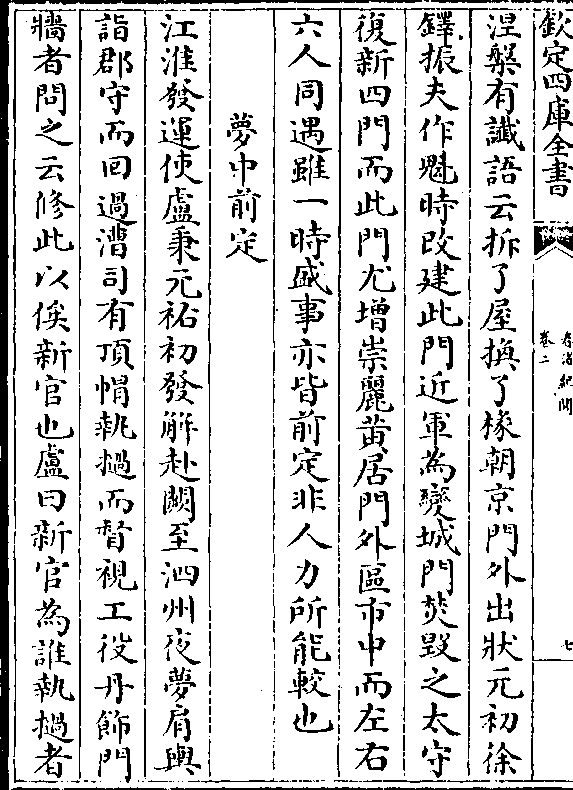 欽定四庫全書
春渚紀聞
卷二
七
涅槃有讖語云拆了屋換了椽朝京門外出狀元初徐
鐸振夫作魁時改建此門近軍為變城門焚毀之太守
復新四門而此門尤增崇麗黃居門外區市中而左右
六人同遇雖一時盛事亦皆前定非人力所能較也
夢中前定
江淮發運使盧秉元祐初發解赴闕至泗州夜夢肩輿
詣郡守而回過漕司有頂帽執撾而督視工役丹飾門
牆者問之云修此以俟新官也盧曰新官為誰執撾者